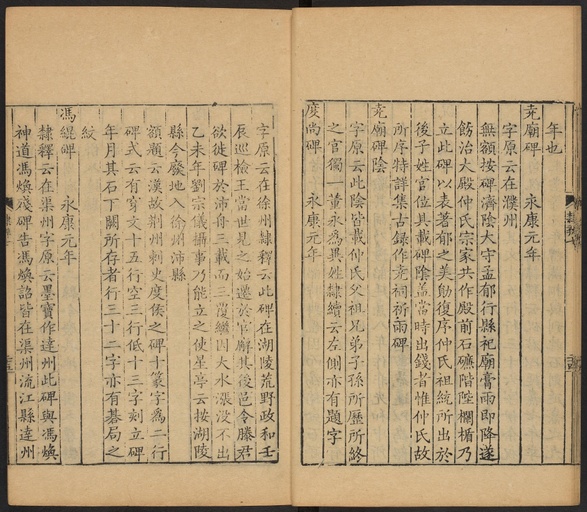 年也
堯廟碑　　永康元年
字原云在濮州
無額按碑濟陰太守孟郁行縣祀廟膏雨即降遂
飭治大殿仲氏宗家共作殿前石礛階陛欄楯乃
立此碑以表著郁之美勛復序仲氏祖統所出於
後子姓官位具載碑陰蓋當時出錢者惟仲氏故
所序特詳集古錄作堯祠祈雨碑
堯廟碑陰
字原云此陰皆載仲氏父祖兄弟子孫所歷所終
之官獨一董永為異姓隸續云左側亦有題字
度尚碑　　永康元年
字原云在徐州隸釋云此碑在湖陵荒野政和壬
辰巡檢王當世見之始遷於官廨其後邑令滕君
欲徙碑於沛舟三載而三覆繼因大水漲沒不出
乙未年劉宗儀攝事乃能立之使星亭云按湖陵
縣今廢地入徐州沛縣
額題云漢故荊州刺史度侯之碑十篆字為二行
碑式云有穿文十五行空三行低十三字刻立碑
年月其石下闕所存者行三十二字亦有碁局之
紋
馮緄碑　　永康元年
隸釋云在渠州字原云墨寶作達州此碑與馮煥
神道馮煥殘碑吿馮煥詔皆在渠州流江縣達州